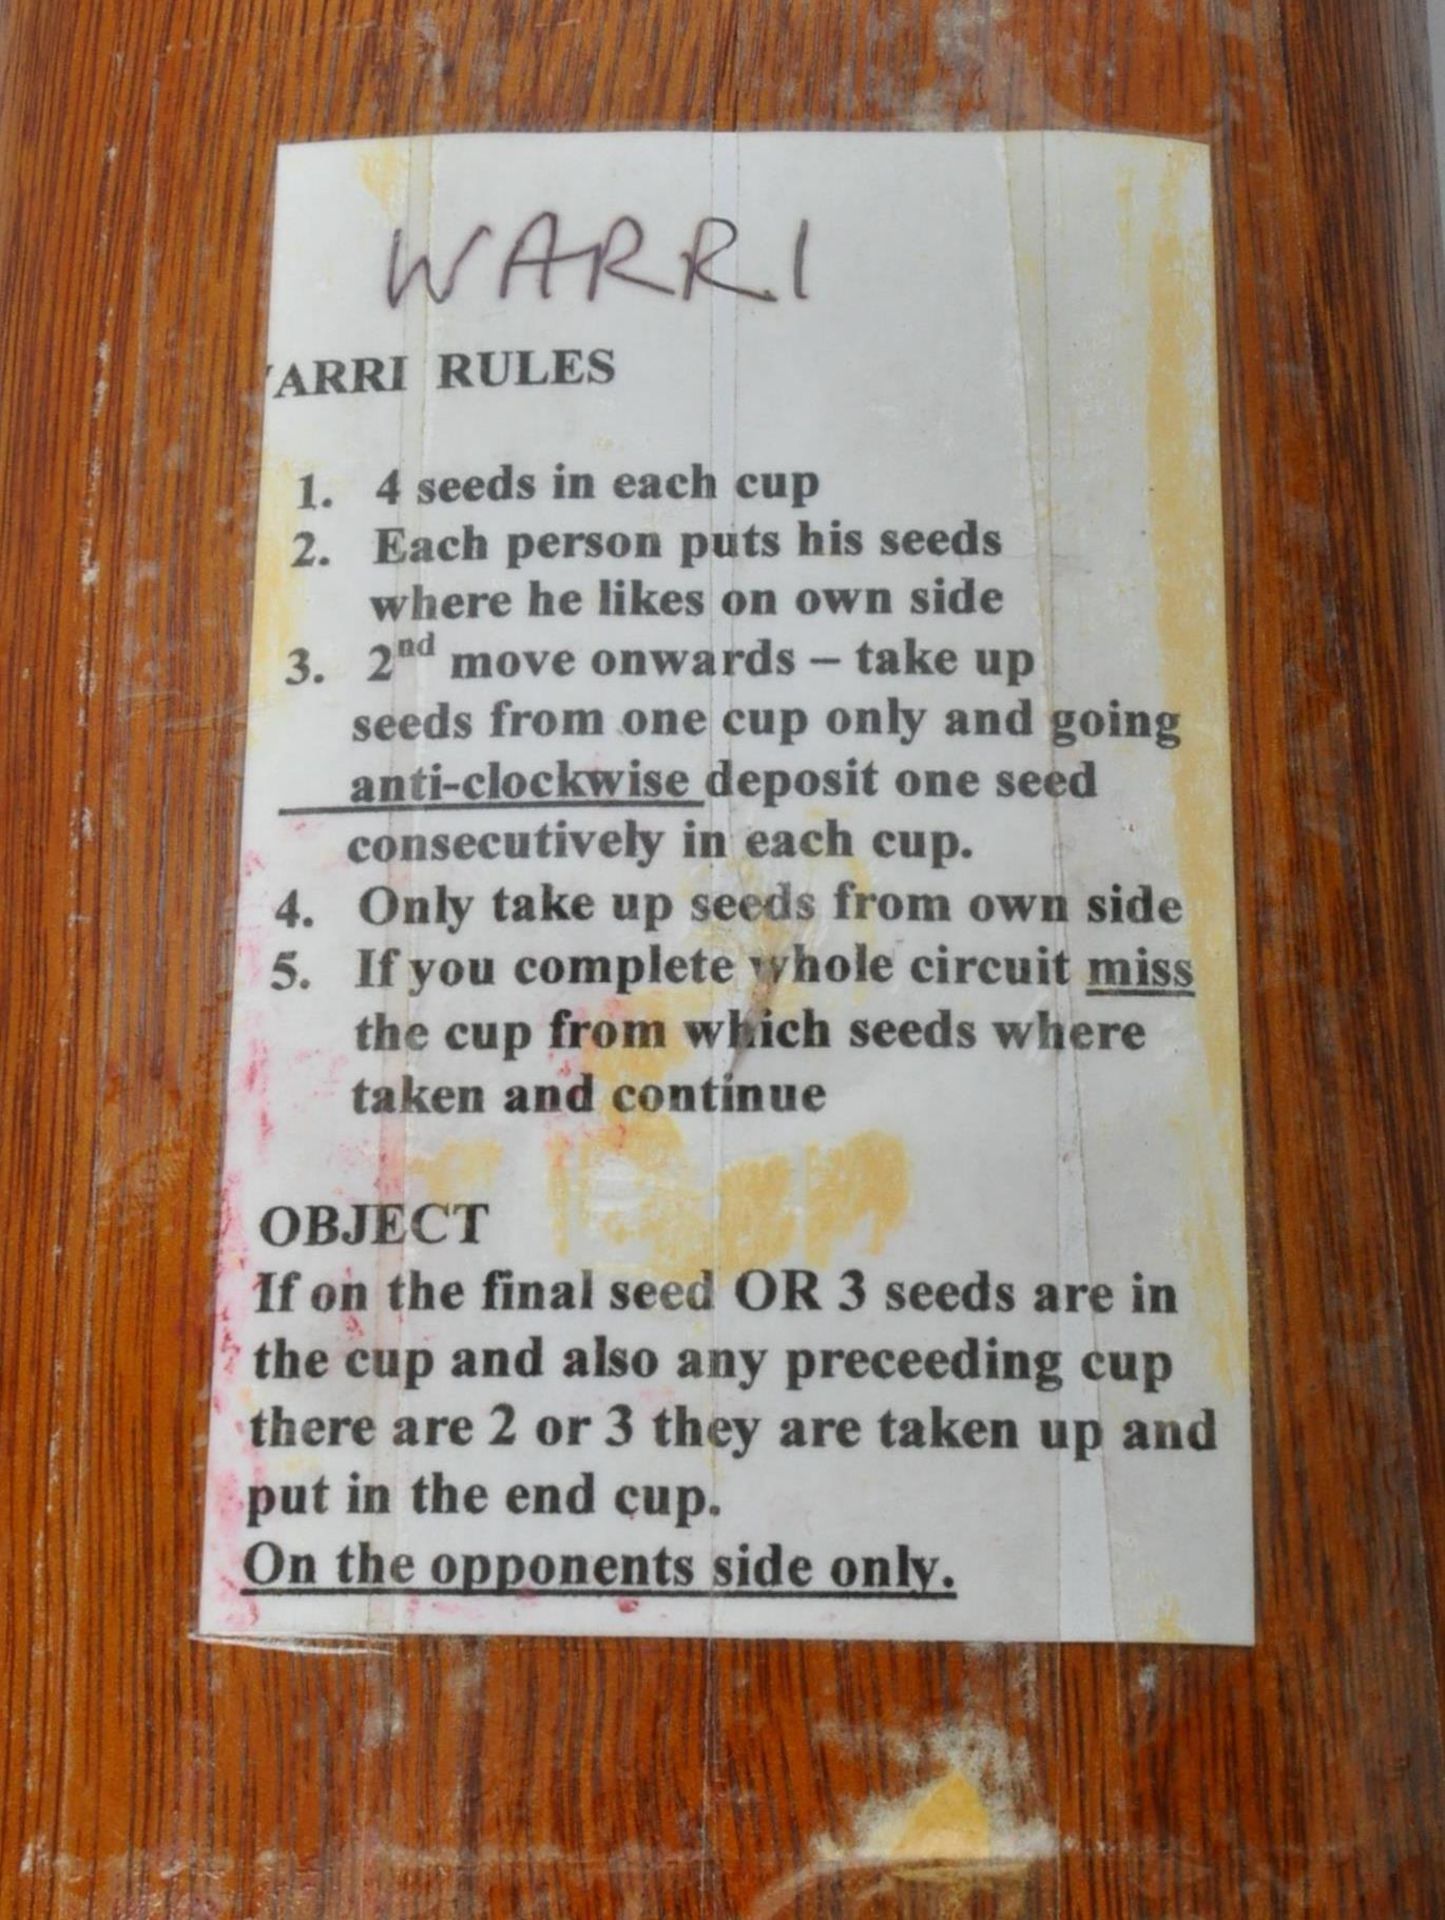 WARRI
ARRI RULES
1. 4 seeds in each cup
2. Each person puts his seeds
where he likes on own side
3. 2nd move onwards – take up
seeds from one cup only and going
anti-clockwise deposit one seed
consecutively in each cup.
4. Only take up seeds from own side
5. If you complete whole circuit miss
the cup from which seeds where
taken and continue
OBJECT
If on the final seed OR 3 seeds are in
the cup and also any preceeding cup
there are 2 or 3 they are taken up and
put in the end cup.
On the opponents side only.